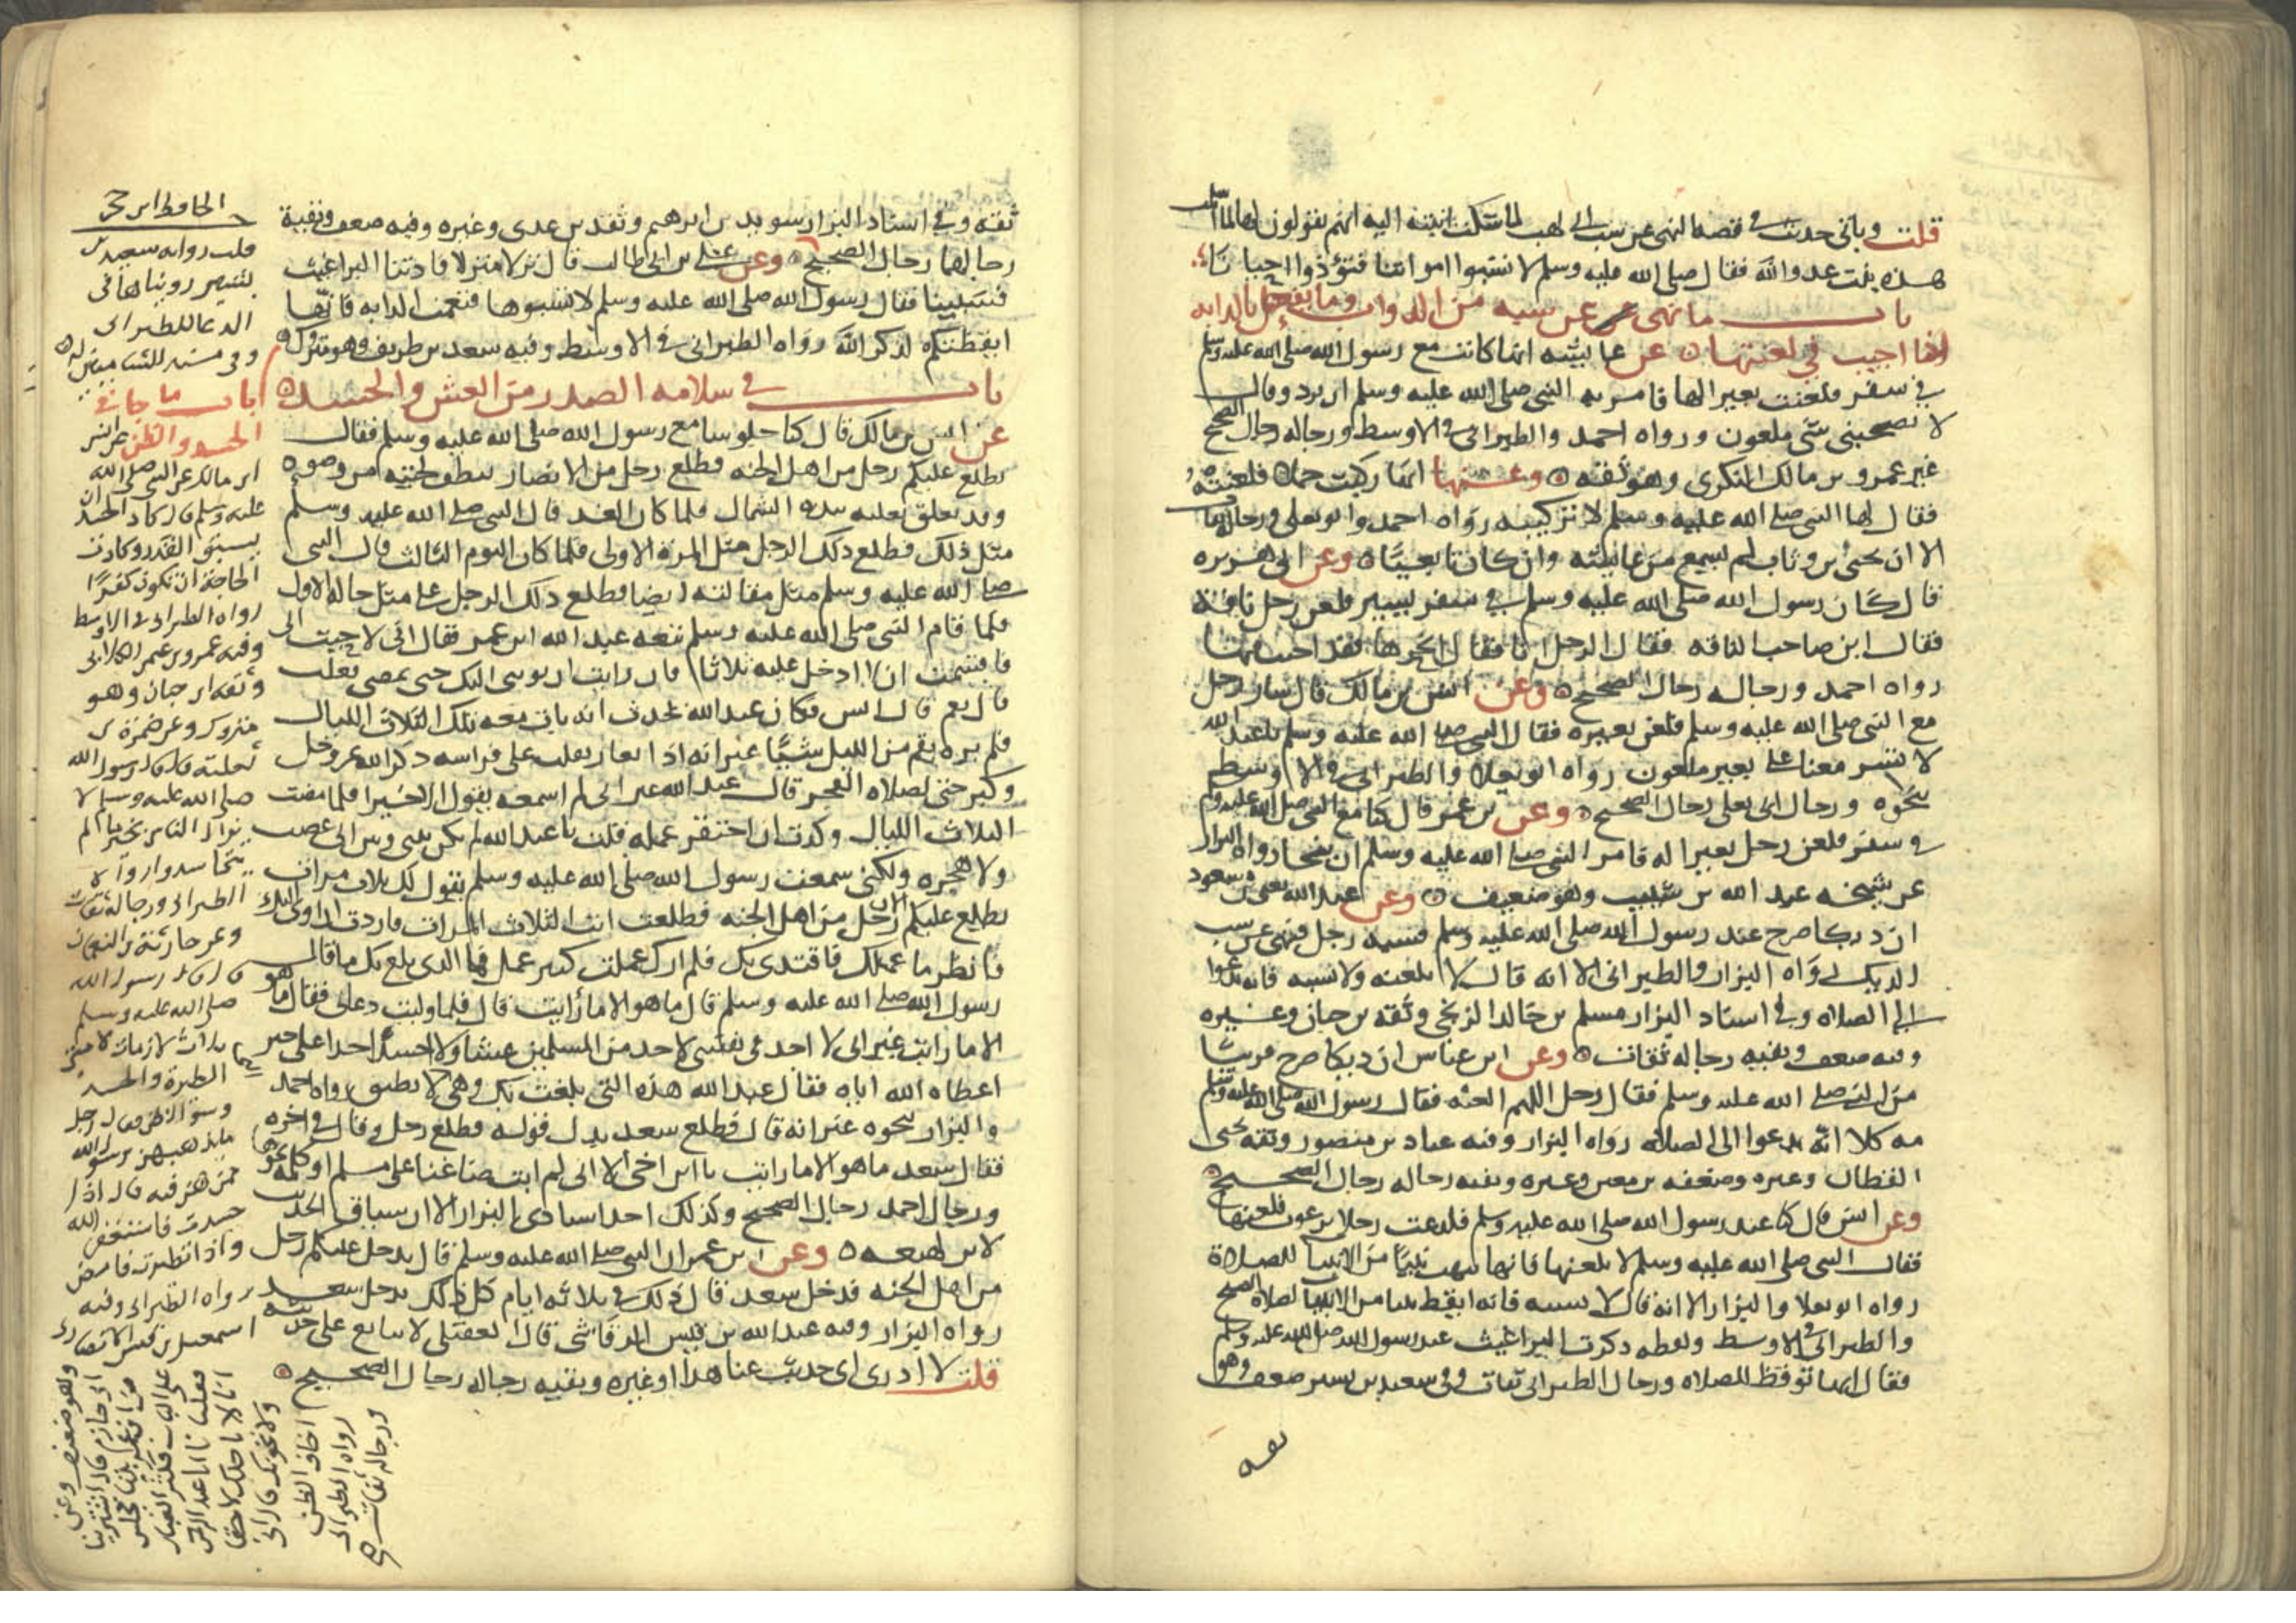 قلت وياتي حديث في قصة النهي عن سب ابي لهب لما شكت ابنته اليه انهم يقولون لها لما اسلمت
هذه بنت عدو الله فقال صلى الله عليه وسلم لا تسبوا امواتنا فتؤذوا احيانا
باب ما نهي عن سبه من الدواب وما يفعل بالدابة
اذا اجيب في لعنتها عن عايشه انها كانت مع رسول الله صلى الله عليه وسلم
في سفر فلعنت بعيرا لها فامر به النبي صلى الله عليه وسلم ان يرد وقال
لا تصحبني شي ملعون ورواه احمد والطبراني في الاوسط ورجاله رجال الصحيح
غير عمرو بن مالك النكري وهو ثقه وعنها انها ركبت جملا فلعنته
فقال لها النبي صلى الله عليه وسلم لا تركبيه رواه احمد وابو يعلى ورجالهما
الا ان يحيى بن وثاب لم يسمع من عايشه وان كان تابعيا وعن ابي هريره
قال كان رسول الله صلى الله عليه وسلم في سفر يسير فلعن رجل ناقة
فقال اين صاحب الناقه فقال الرجل انا فقال اخرها فقد اجبت فيها
رواه احمد ورجاله رجال الصحيح وعن انس بن مالك قال سار رجل
مع النبي صلى الله عليه وسلم فلعن بعيره فقال النبي صلى الله عليه وسلم يا عبد الله
لا تسر معنا على بعير ملعون رواه ابو يعلا والطبراني في الاوسط
بنحوه ورجال ابي يعلى رجال الصحيح وعن بن عمر قال كنا مع النبي صلى الله عليه وسلم
في سفر فلعن رجل بعيرا له فامر النبي صلى الله عليه وسلم ان رواه البزار
عن شيخه عبد الله بن شبيب وهو ضعيف وعن عبد الله يعني بن مسعود
ان ديكا صرخ عند رسول الله صلى الله عليه وسلم فسبه رجل فنهى عن سب
الديك رواه البزار والطبراني الا انه قال لا تلعنه ولا تسبه فانه يدعوا
الى الصلاه وفي اسناد البزار مسلم بن خالد الزنجي وثقه بن حبان وغيره
وفيه ضعف وبقيه رجاله ثقات وعن ابن عباس ان ديكا صرخ قريبا
من النبي صلى الله عليه وسلم فقال رجل اللهم العنه فقال رسول الله صلى الله عليه وسلم
مه كلا انه يدعوا الى الصلاه رواه البزار وفيه عباد بن منصور وثقه يحيى
القطان وغيره وضعفه بن معين وغيره وبقيه رجاله رجال الصحيح
وعن انس قال كنا عند رسول الله صلى الله عليه وسلم فلدغت رجلا برغوث فلعنها
فقال النبي صلى الله عليه وسلم لا تلعنها فانها نبهت نبيا من الانبيا للصلاة
رواه ابو يعلا والبزار الا انه قال لا تسبه فانه ايقظ نبيا من الانبيا لصلاة الصبح
والطبراني في الاوسط ولفظه ذكرت البراغيث عند رسول الله صلى الله عليه وسلم
فقال انها توقظ للصلاه ورجال الطبراني ثقات وفي سعيد بن بشير ضعف وهو
ثقه
ثقه وفي اسناد البزار سويد بن ابراهيم وثقه بن عدي وغيره وفيه ضعف وبقية
رجالهما رجال الصحيح وعن علي بن ابي طالب قال نزلا منزلا فاذتنا البراغيث
فسببناها فقال رسول الله صلى الله عليه وسلم لا تسبوها فنعمت الدابه فانها
ايقظتكم لذكر الله رواه الطبراني في الاوسط وفيه سعد بن طريف وهو متروك
باب في سلامه الصدر من الغش والحسد
عن انس بن مالك قال كنا جلوسا مع رسول الله صلى الله عليه وسلم فقال
يطلع عليكم رجل من اهل الجنه فطلع رجل من الانصار تنطف لحيته من وضوءه
وقد تعلق نعليه بيده الشمال فلما كان الغد قال النبي صلى الله عليه وسلم
مثل ذلك فطلع ذلك الرجل مثل المرة الاولى فلما كان اليوم الثالث قال النبي
صلى الله عليه وسلم مثل مقالته ايضا فطلع ذلك الرجل على مثل حاله الاول
فلما قام النبي صلى الله عليه وسلم تبعه عبد الله ابن عمر فقال اني لاحيت ابي
فاقسمت ان لا ادخل عليه ثلاثا فان رايت ان تؤيني اليك حتى تمضي فعلت
قال نعم قال انس فكان عبد الله يحدث انه بات معه تلك الثلاث الليال
فلم يره يقم من الليل شيئا غير انه اذا تعار تقلب على فراشه ذكر الله عز وجل
وكبر حتى لصلاه الفجر قال عبد الله غير اني لم اسمعه يقول الا خيرا فلما مضت
الثلاث الليال وكدت ان احتقر عمله قلت يا عبد الله لم يكن بيني وبين ابي غضب
ولا هجره ولكني سمعت رسول الله صلى الله عليه وسلم يقول لك ثلاث مرات
يطلع عليكم الان رجل من اهل الجنه فطلعت انت الثلاث المرات فاردت ان اوي اليك
فانظر ما عملك فاقتدي بك فلم ارك عملت كبير عمل فما الذي بلغ بك ما قال
رسول الله صلى الله عليه وسلم قال ما هو الا ما رايت قال فلما وليت دعاني فقال ما هو
الا ما رايت غير اني لا اجد في نفسي لاحد من المسلمين غشا ولا احسد احدا على خير
اعطاه الله اياه فقال عبد الله هذه التي بلغت بك وهي لا نطيق رواه احمد
والبزار بنحوه غير انه قال فطلع سعد بدل قوله فطلع رجل وقال في اخره
فقال سعد ما هو الا ما رايت يا ابن اخي الا اني لم ابت ضاغنا على مسلم او كلمه نحوها
ورجال احمد رجال الصحيح وكذلك احد اسنادي البزار الا ان سياق الحديث
لابن لهيعه وعن ابن عمر ان النبي صلى الله عليه وسلم قال يدخل عليكم رجل
من اهل الجنه فدخل سعد قال ذلك في ثلاثه ايام كل ذلك يدخل سعد
رواه البزار وفيه عبد الله بن قيس الرقاشي قال العقيلي لا يتابع على حديثه
قلت لا ادري اي حديث عنا هذا او غيره وبقيه رجاله رجال الصحيح
الحافظ ابن حجر
قلت رواية سعيد بن
بشير رويناها في
الدعا للطبراني
وفي مسند الشاميين له
باب ما جا في
الحسد والظن عن انس
ابن مالك عن النبي صلى الله
عليه وسلم قال كاد الحسد ان
يسبق القدر وكادت
الحاجة ان تكون كفرا
رواه الطبراني في الاوسط
وفيه عمرو بن عثمن الكلابي
وثقه ابن حبان وهو
متروك وعن ضمرة بن
ثعلبة قال قال رسول الله
صلى الله عليه وسلم لا
يزال الناس بخير ما لم
يتحاسدوا رواه
الطبراني ورجاله ثقات
وعن حارثة بن النعمان
قال قال رسول الله
صلى الله عليه وسلم
ثلاث لازمات لامتي
الطيرة والحسد
وسؤ الظن فقال رجل
ما يذهبهن يرسول الله
ممن هن فيه قال اذا
حسدت فاستغفر الله
واذا تطيرت فامض
رواه الطبراني وفيه
اسمعيل بن قيس الانصاري
وهو ضعيف وعن
رواه الطبراني
ورجاله ثقات